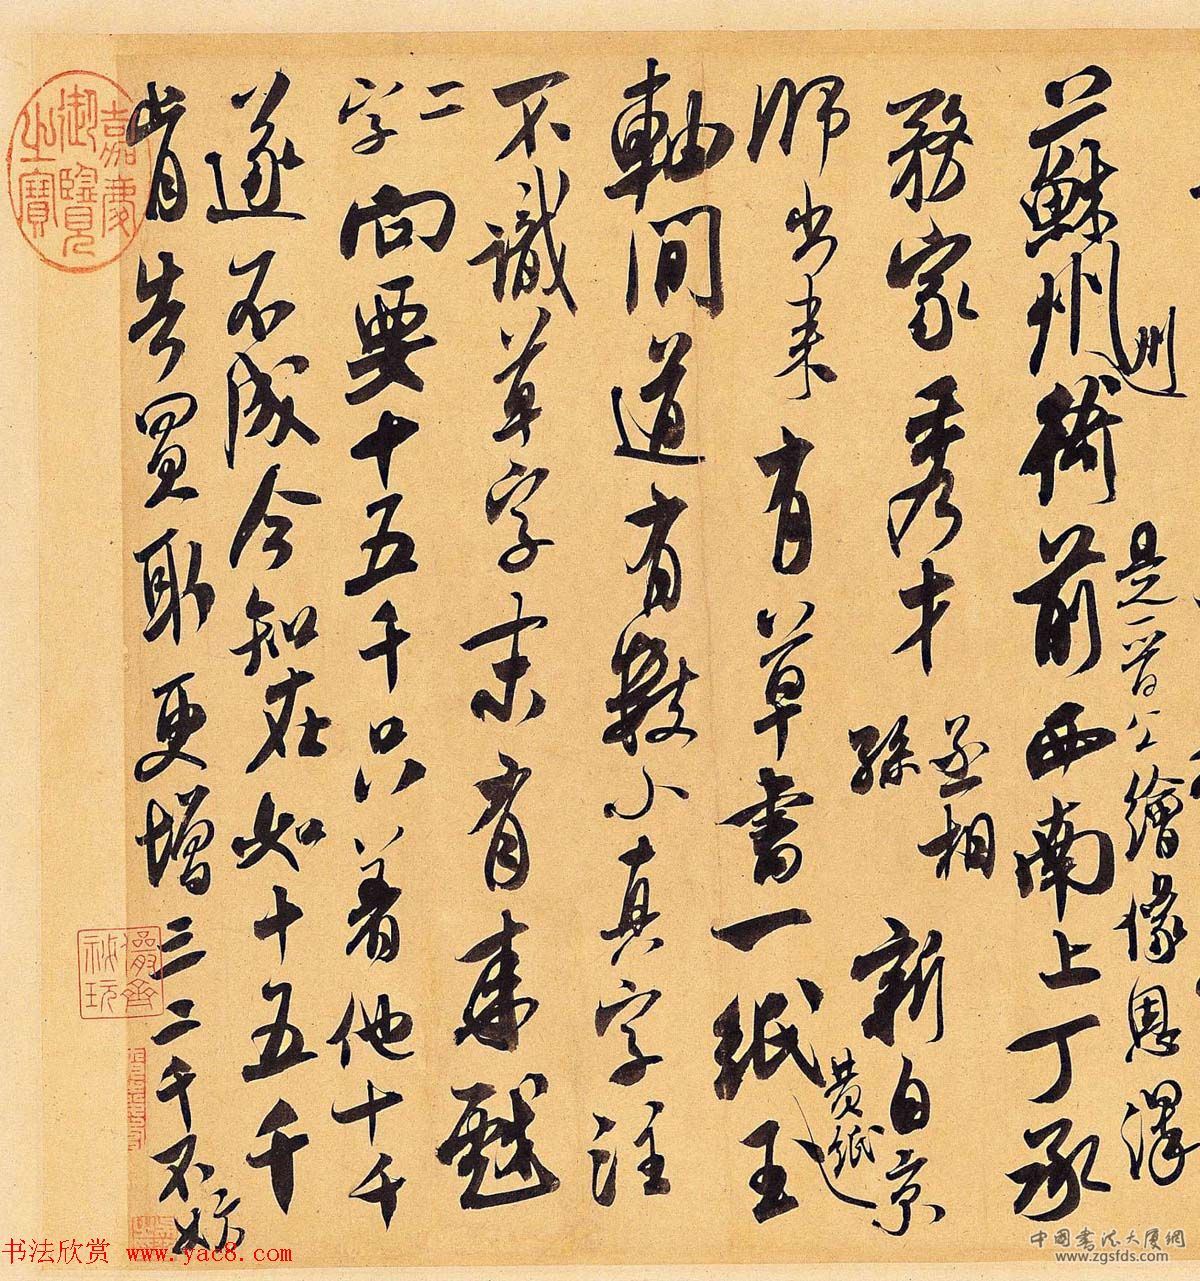 是晉公繪像恩澤
州
蘇州衙前西南上丁承
務家秀才丞相孫新自京
師出來有草書一紙黄紙玉
軸間道有數小真字注
不識草字末有來戲
二字向要十五千只着他十千
遂不成今知在如十五千
肯告買取更增三二千不妨
嘉慶御覽之寶
儼齋祕玩
书法欣赏 www.yac8.com
中国书法大厦网
www.zgsfds.com